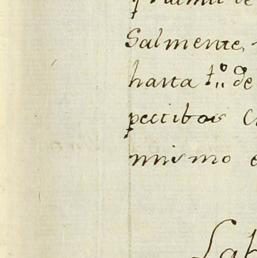 Salmente,
harta t.º de
pectibos
mismo e
Lab